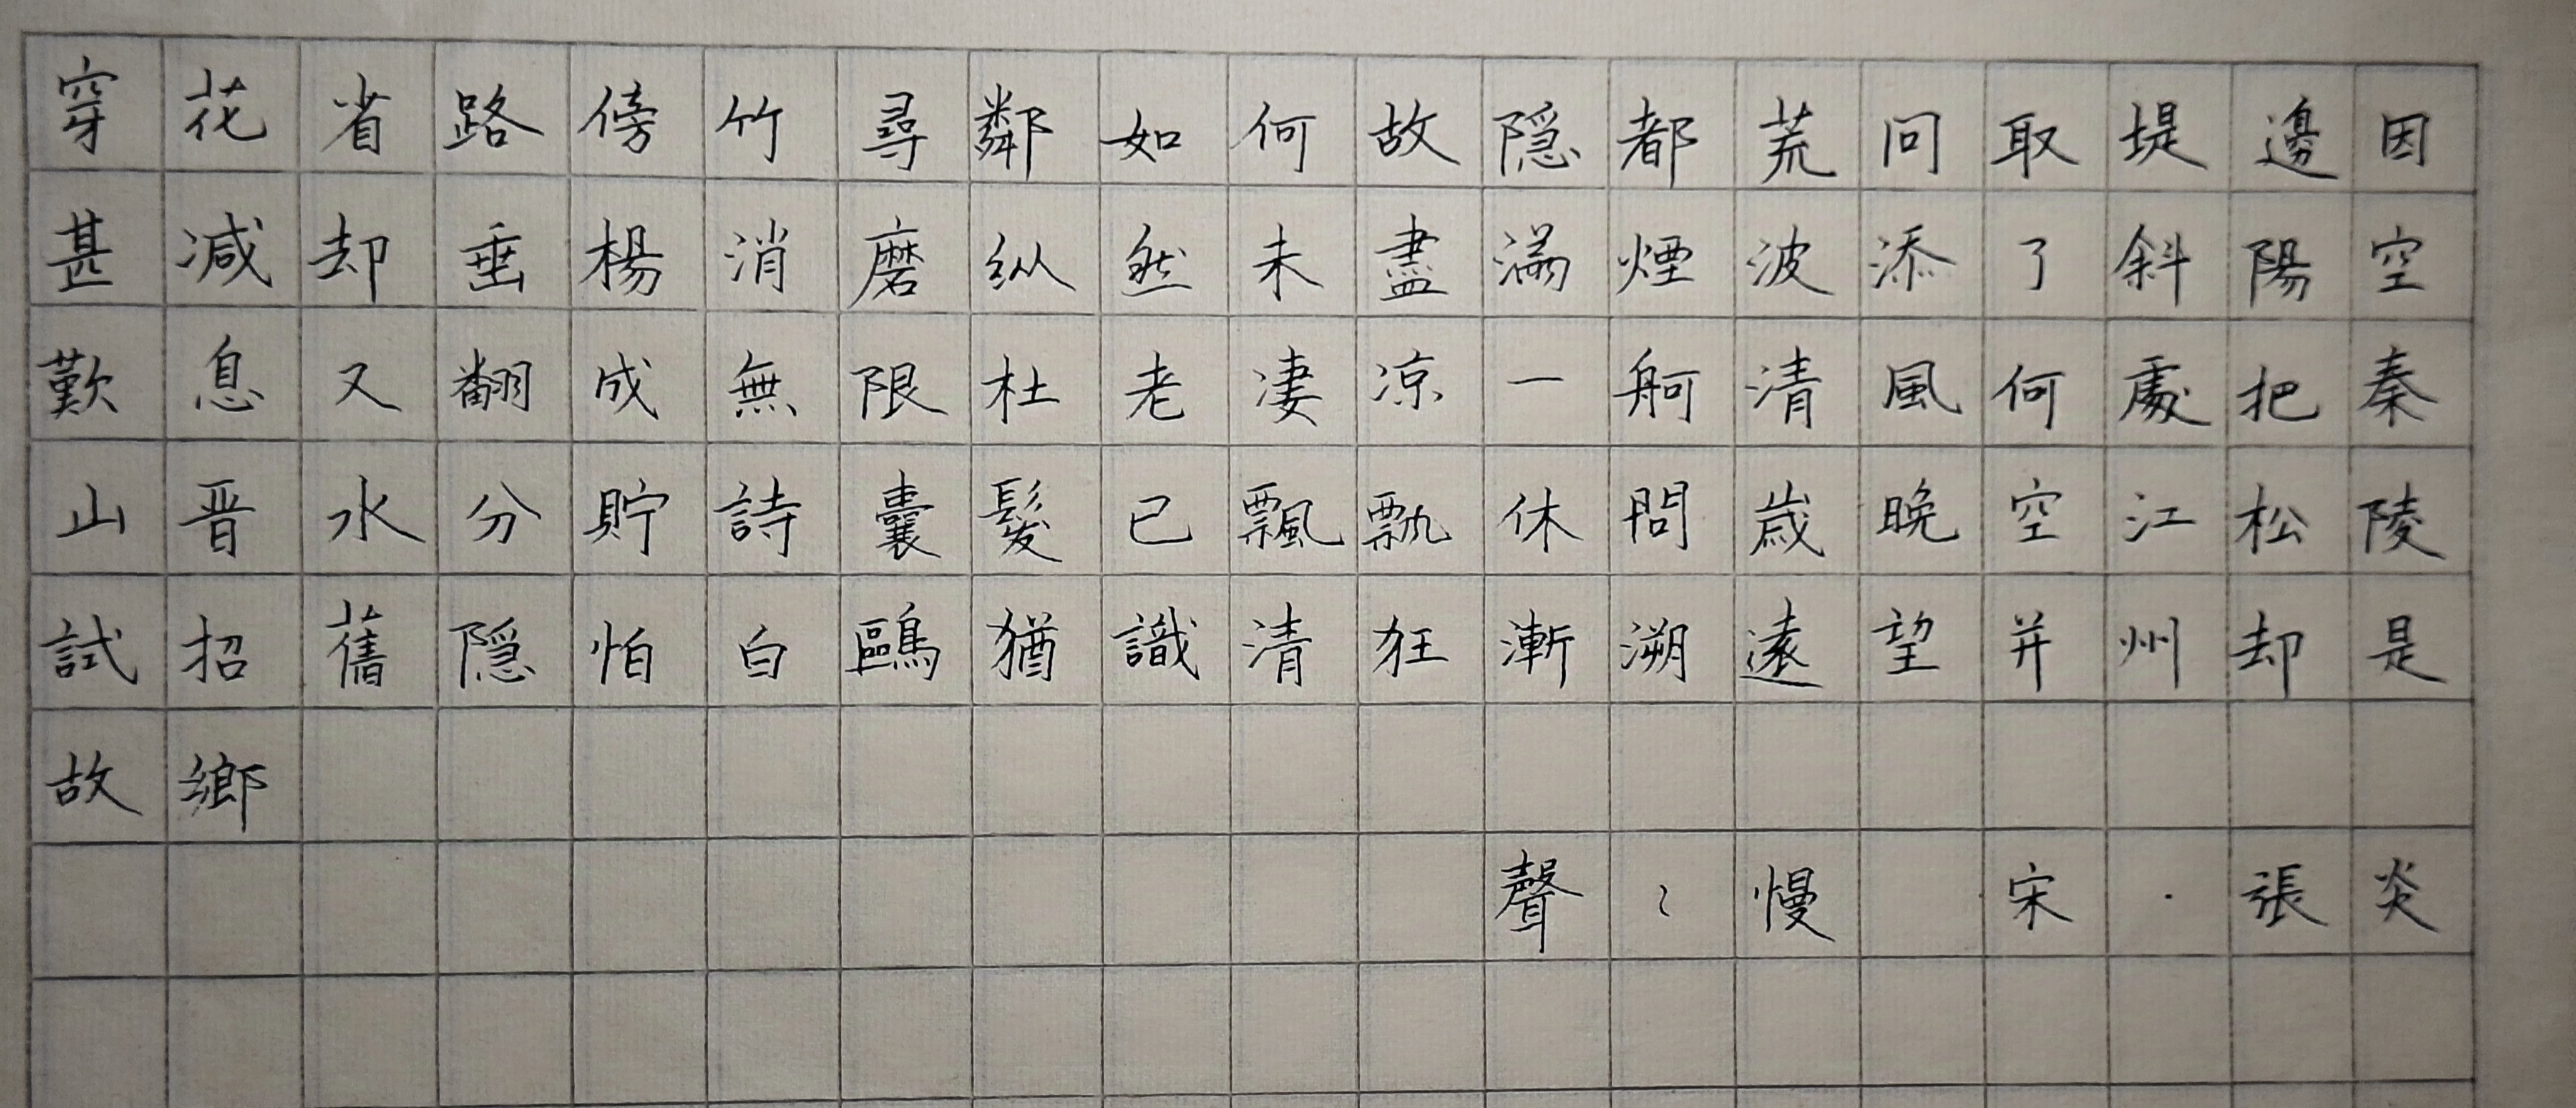 穿花省路傍竹尋鄰如何故隱都荒问取堤邊因
甚减却垂楊消磨纵然未盡滿煙波添了斜陽空
歎息又翻成無限杜老凄凉一舸清風何處把秦
山晋水分貯詩囊髮已飄飄休問歲晚空江松陵
試招舊隱怕白鷗猶識清狂漸溯遠望并州却是
故鄉
聲〻慢 宋·張炎